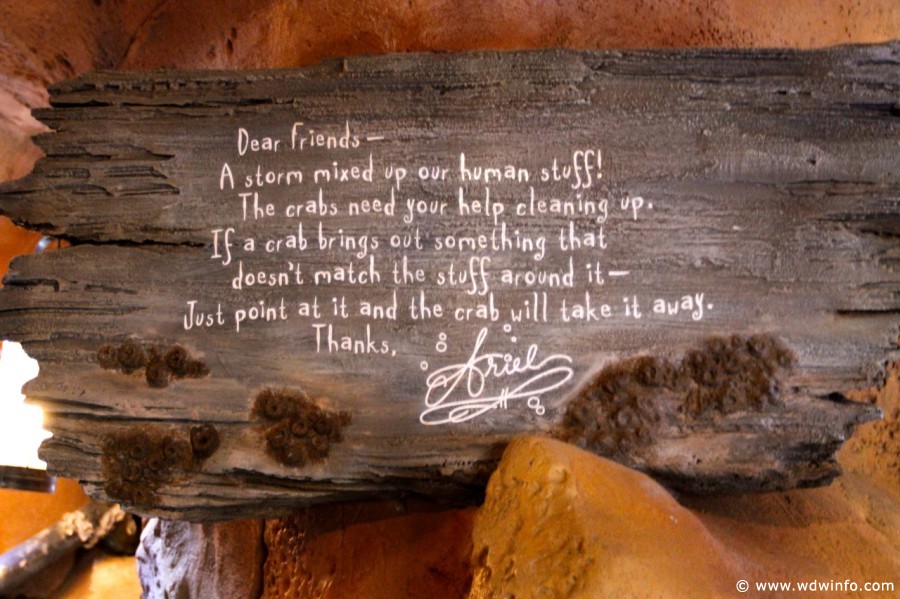 Dear Friends—
A storm mixed up our human stuff!
The crabs need your help cleaning up.
If a crab brings out something that
doesn't match the stuff around it—
Just point at it and the crab will take it away.
Thanks,
Ariel
© www.wdwinfo.com